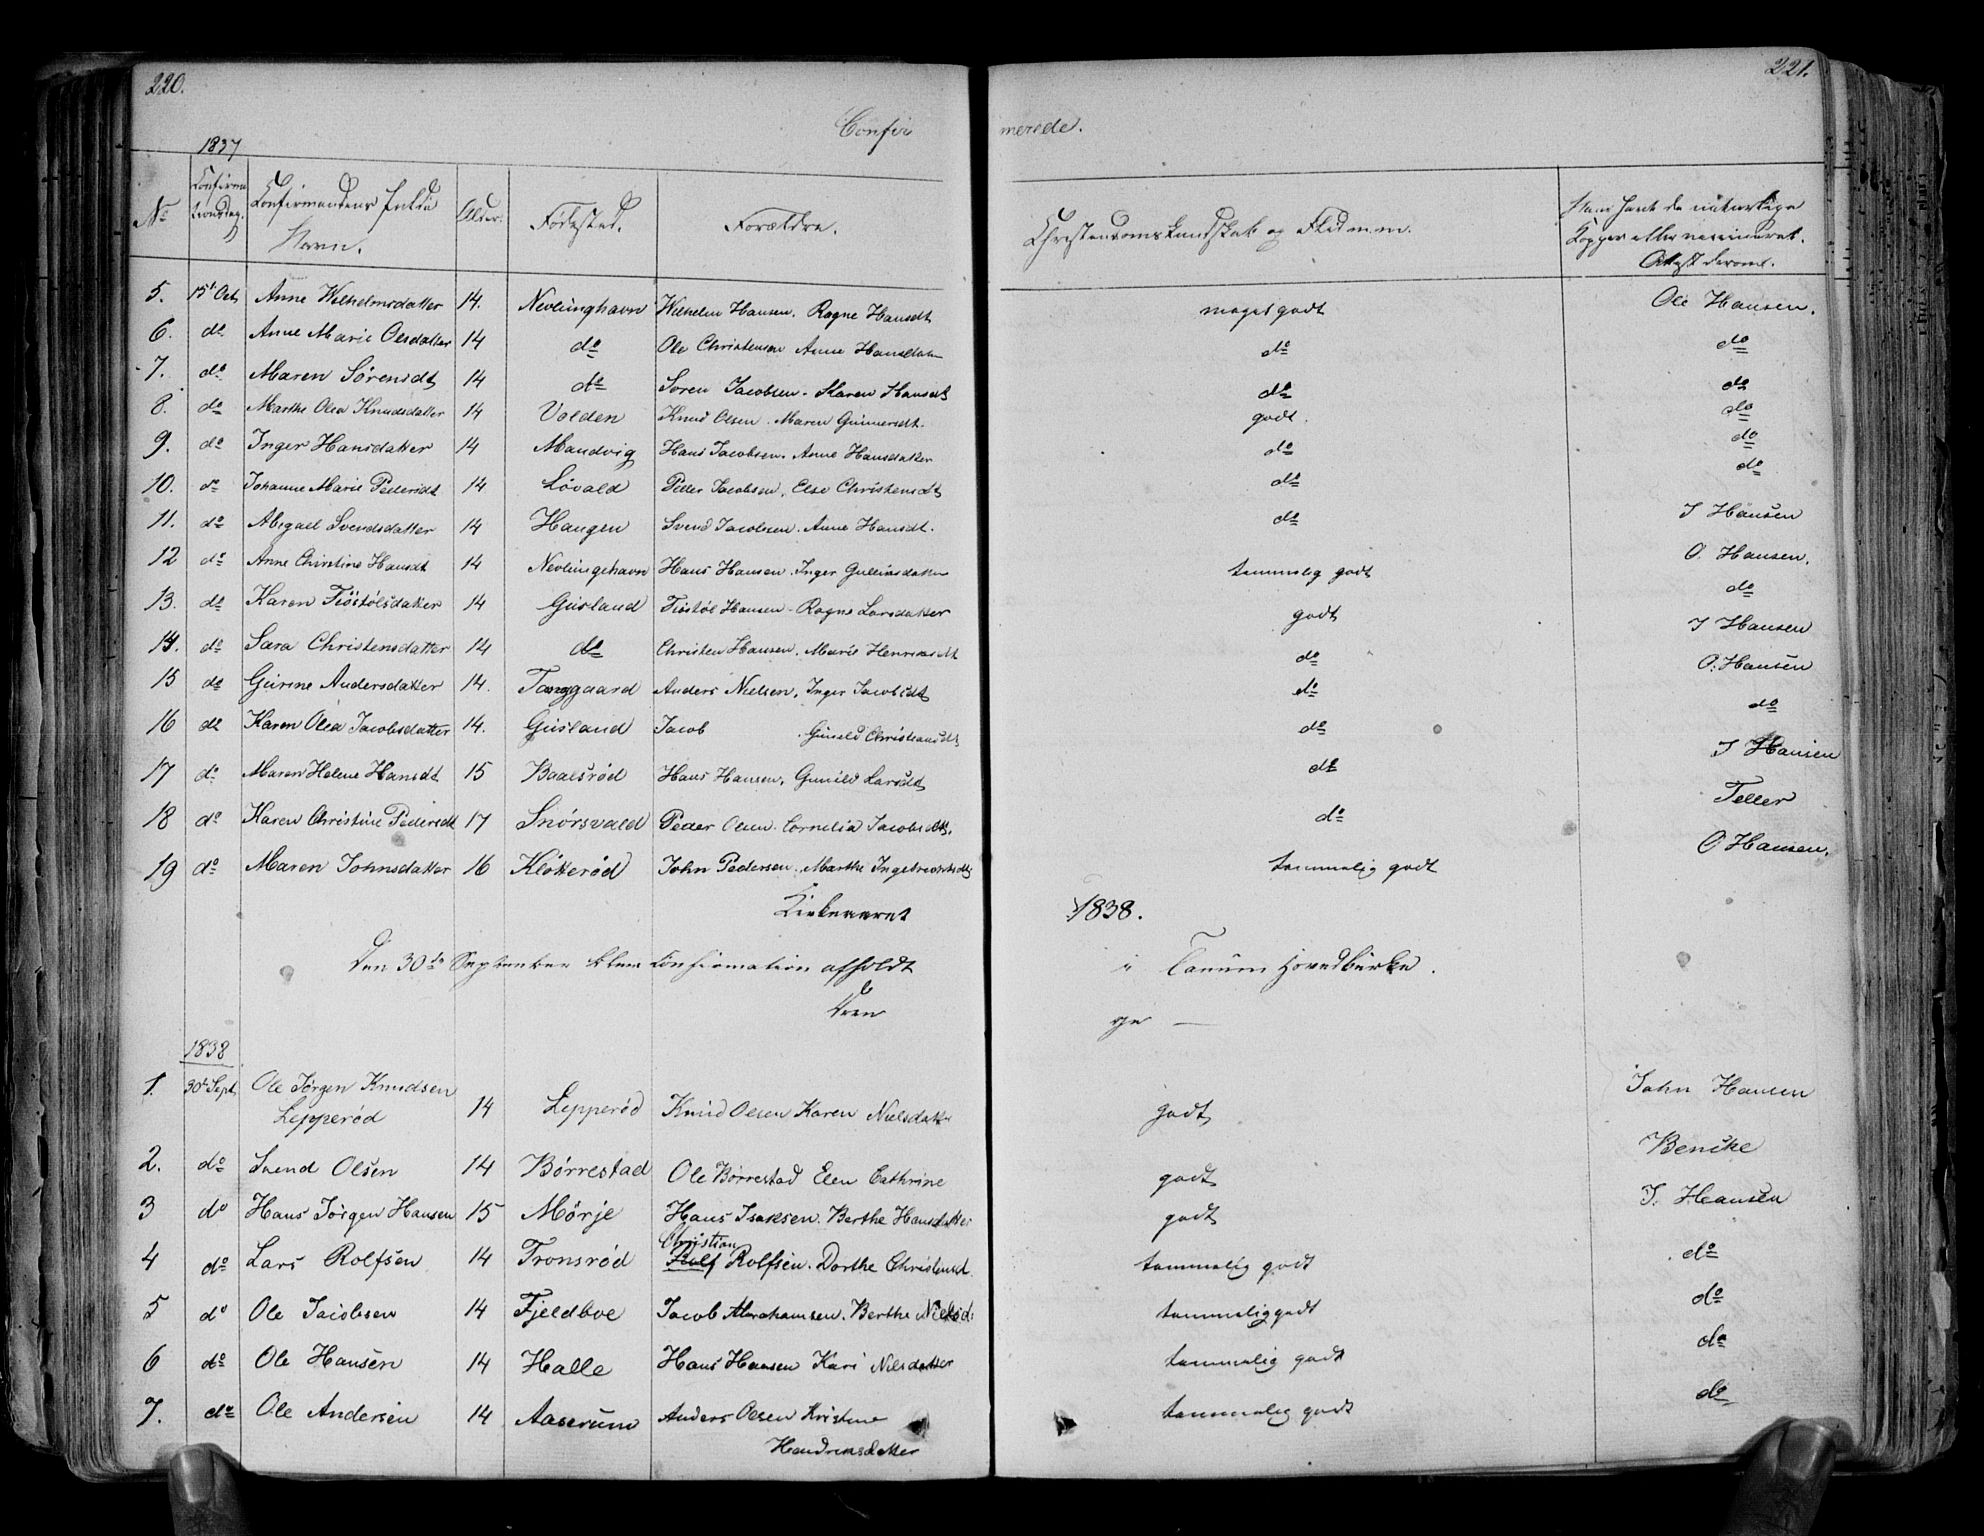 220.
221.
Confir merede.
1837
No Confirmationsdag. Confirmandens fulde Navn. Alder. Fødested. Forældre. Christendomskundskab og Flid m. m. Naar havt de naturlige Kopper eller vaccineret. Attest derom.
5. 15t Oct Anne Wilhelmsdatter 14. Nevlunghavn Wilhelm Hansen. Ragne Hansdt meget godt Ole Hansen.
6. do Anne Marie Olsdatter 14 do Ole Christensen Anne Hansdatter do do
7. do Maren Sörensdt 14 do Soren Jacobsen. Karen Hansdt do do
8. do Marthe Olea Knudsdatter 14 Valden Knud Olsen. Maren Gunnersdt. godt. do
9. do Inger Hansdatter 14 Mandvig Hans Jacobsen. Anne Hansdatter do do
10. do Johanne Marie Pedersdt 14 Lövald Peder Jacobsen, Else Christensdt do do
11. do Abigael Svendsdatter 14 Haugen Svend Jacobsen. Anne Hansdt. do J Hansen
12 do Anne Christine Hansdt 14 Nevlunghavn Hans Hansen. Inger Gulliksdatter temmelig godt O. Hansen.
13. do Karen Tiöstölsdatter 14 Gusland Tiostöl Hansen - Ragne Larsdatter godt do
14. do Sara Christensdatter 14 do Christen Hansen. Marie Henriksdt do J Hansen
15 do Gurine Andersdatter 14. Tanggaard Anders Nielsen, Inger Jacobsdt do O. Hansen
16 do Karen Olea Jacobsdatter 14. Gusland Jacob . Gunild Christiansdt do do
17 do Maren Helene Hansdt 15 Baalsröd Hans Hansen, Gunild Larsdt do J Hansen
18 do Karen Christine Pedersdt 17 Snörsvald Peder Olsen. Cornelia Jacobsdt. do Teller
19 do Maren Johnsdatter 16 Klötteröd John Pedersen. Marthe Ingebretsdt temmelig godt O Hansen.
Kirkeaaret 1838.
Den 30te September blev Confirmation afholdt i Tanum Hovedkirke.
Dren ge —
1838
1. 30te Sept. Ole Jörgen Knudsen
Lepperöd 14 Lepperöd Knud Olsen Karen Nielsdatter godt John Hansen
2. do Svend Olsen 14 Börrestad Ole Börrestad Elen Cathrine godt Bencke
3 do Hans Jörgen Hansen 15 Mörje Hans Isaksen. Berthe Hansdatter godt J. Hansen
Christian
4 do Lars Rolfsen 14 Tronsröd Rolf Rolfsen. Dorthe Christensd. temmelig godt do
5 do Ole Jacobsen 14 Fjeldboe Jacob Abrahamsen. Berthe Nielsd: temmelig godt do
6 do Ole Hansen 14 Halle Hans Hansen Kari Nilsdatter temmelig godt do
7. do Ole Andersen 14 Aaserum Anders Olsen Kristine temmelig godt do
Hendriksdatter